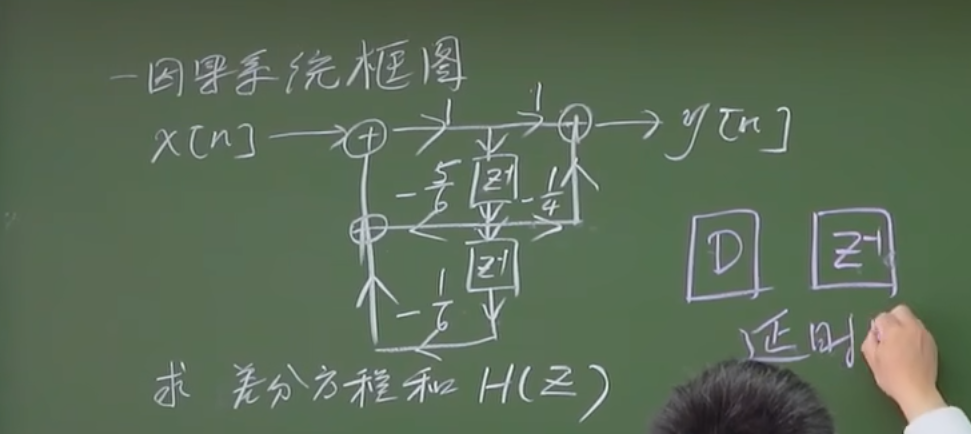 一因果系统框图
x[n] + 1 1 + y[n]
-5/6 Z⁻¹ -1/4
+ Z⁻¹
-1/6
D Z⁻¹
延时
求 差分方程和 H(Z)